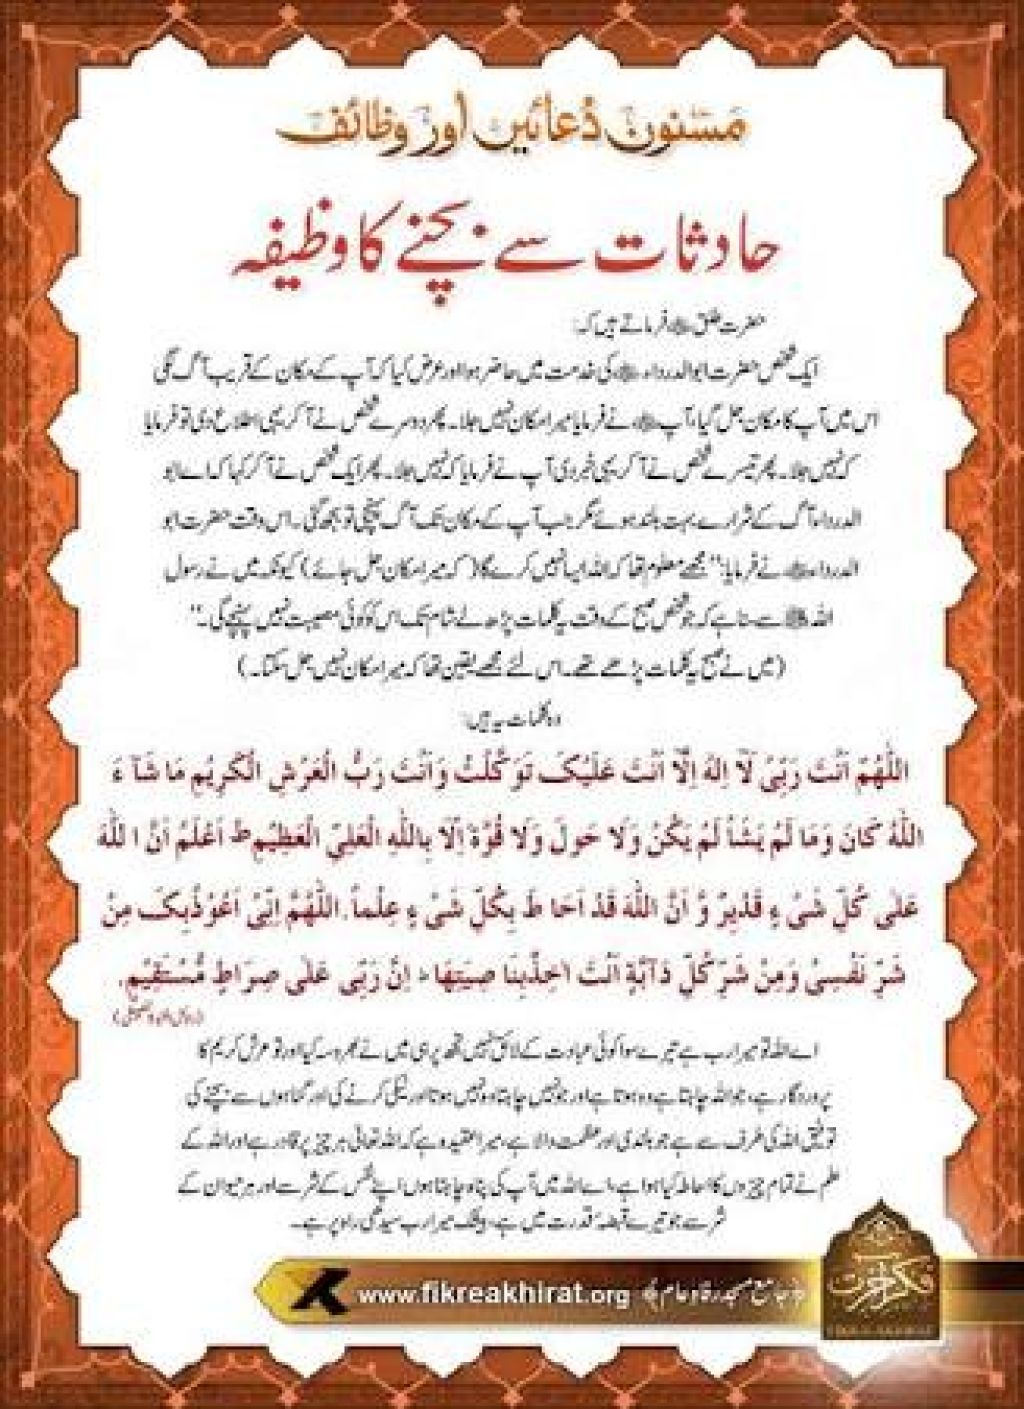 مسنون دُعائیں اور وظائف
حادثات سے بچنے کا وظیفہ
حضرت طلق ؓ فرماتے ہیں کہ:
ایک شخص حضرت ابوالدرداء ؓ کی خدمت میں حاضر ہوا اور عرض کیا کہ آپ کے مکان کے قریب آگ لگی
اس میں آپ کا مکان جل گیا، آپ ؓ نے فرمایا میرا مکان نہیں جلا۔ پھر دوسرے شخص نے آ کر یہی اطلاع دی تو فرمایا
کہ نہیں جلا۔ پھر تیسرے شخص نے آ کر یہی خبر دی آپ نے فرمایا کہ نہیں جلا۔ پھر ایک شخص نے آ کر کہا کہ اے ابو
الدرداء آگ کے شرارے بہت بلند ہوئے مگر جب آپ کے مکان تک آگ پہنچی تو بجھ گئی۔ اس وقت حضرت ابو
الدرداء ؓ نے فرمایا: ’’مجھے معلوم تھا کہ اللہ ایسا نہیں کرے گا (کہ میرا مکان جل جائے) کیونکہ میں نے رسول
اللہ ﷺ سے سنا ہے کہ جو شخص صبح کے وقت یہ کلمات پڑھ لے شام تک اس کو کوئی مصیبت نہیں پہنچے گی۔‘‘
(میں نے صبح یہ کلمات پڑھے تھے۔ اس لئے مجھے یقین تھا کہ میرا مکان نہیں جل سکتا۔)
وہ کلمات یہ ہیں:
اَللّٰهُمَّ اَنْتَ رَبِّیْ لَآ اِلٰهَ اِلَّآ اَنْتَ عَلَیْکَ تَوَکَّلْتُ وَاَنْتَ رَبُّ الْعَرْشِ الْکَرِیْمِ مَا شَآءَ
اللّٰهُ کَانَ وَمَا لَمْ یَشَأْ لَمْ یَکُنْ وَلَا حَوْلَ وَلَا قُوَّةَ اِلَّا بِاللّٰهِ الْعَلِیِّ الْعَظِیْمِ ط اَعْلَمُ اَنَّ اللّٰهَ
عَلٰی کُلِّ شَیْءٍ قَدِیْرٌ وَّ اَنَّ اللّٰهَ قَدْ اَحَاطَ بِکُلِّ شَیْءٍ عِلْماً۔ اَللّٰهُمَّ اِنِّیْ اَعُوْذُبِکَ مِنْ
شَرِّ نَفْسِیْ وَمِنْ شَرِّ کُلِّ دَآبَّةٍ اَنْتَ اٰخِذٌبِنَا صِیَتِهَا ط اِنَّ رَبِّیْ عَلٰی صِرَاطٍ مُّسْتَقِیْمٍ۔
اے اللہ تو میرا رب ہے تیرے سوا کوئی عبادت کے لائق نہیں تجھ پر ہی میں نے بھروسہ کیا اور تو عرش کریم کا
پروردگار ہے، جو اللہ چاہتا ہے وہ ہوتا ہے اور جو نہیں چاہتا وہ نہیں ہوتا اور نیکی کرنے کی اور گناہوں سے بچنے کی
توفیق اللہ کی طرف سے ہے جو بلندی اور عظمت والا ہے، میرا عقیدہ ہے کہ اللہ تعالیٰ ہر چیز پر قادر ہے اور اللہ کے
علم نے تمام چیزوں کا احاطہ کیا ہوا ہے، اے اللہ میں آپ کی پناہ چاہتا ہوں اپنے نفس کے شر سے اور ہر حیوان کے
شر سے جو تیرے قبضۂ قدرت میں ہے، بیشک میرا رب سیدھی راہ پر ہے۔
www.fikreakhirat.org ﴿جامع مسجد رفاہ عام﴾
فکر آخرت